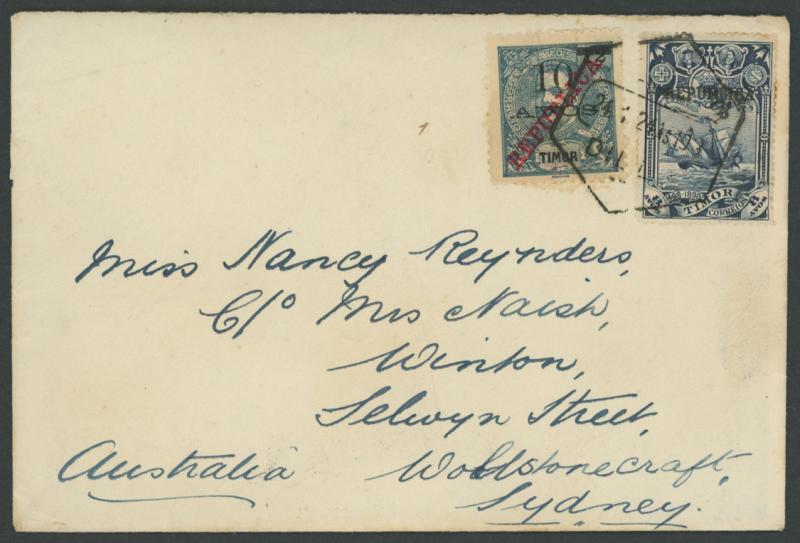 10
AVOS
REPUBLICA
TIMOR
REPUBLICA
1898
TIMOR
CORREIOS
8
AVOS
8
AVOS
Miss Nancy Reynders,
C/o Mrs Naish,
Winton,
Selwyn Street,
Australia Wollstonecraft,
Sydney.